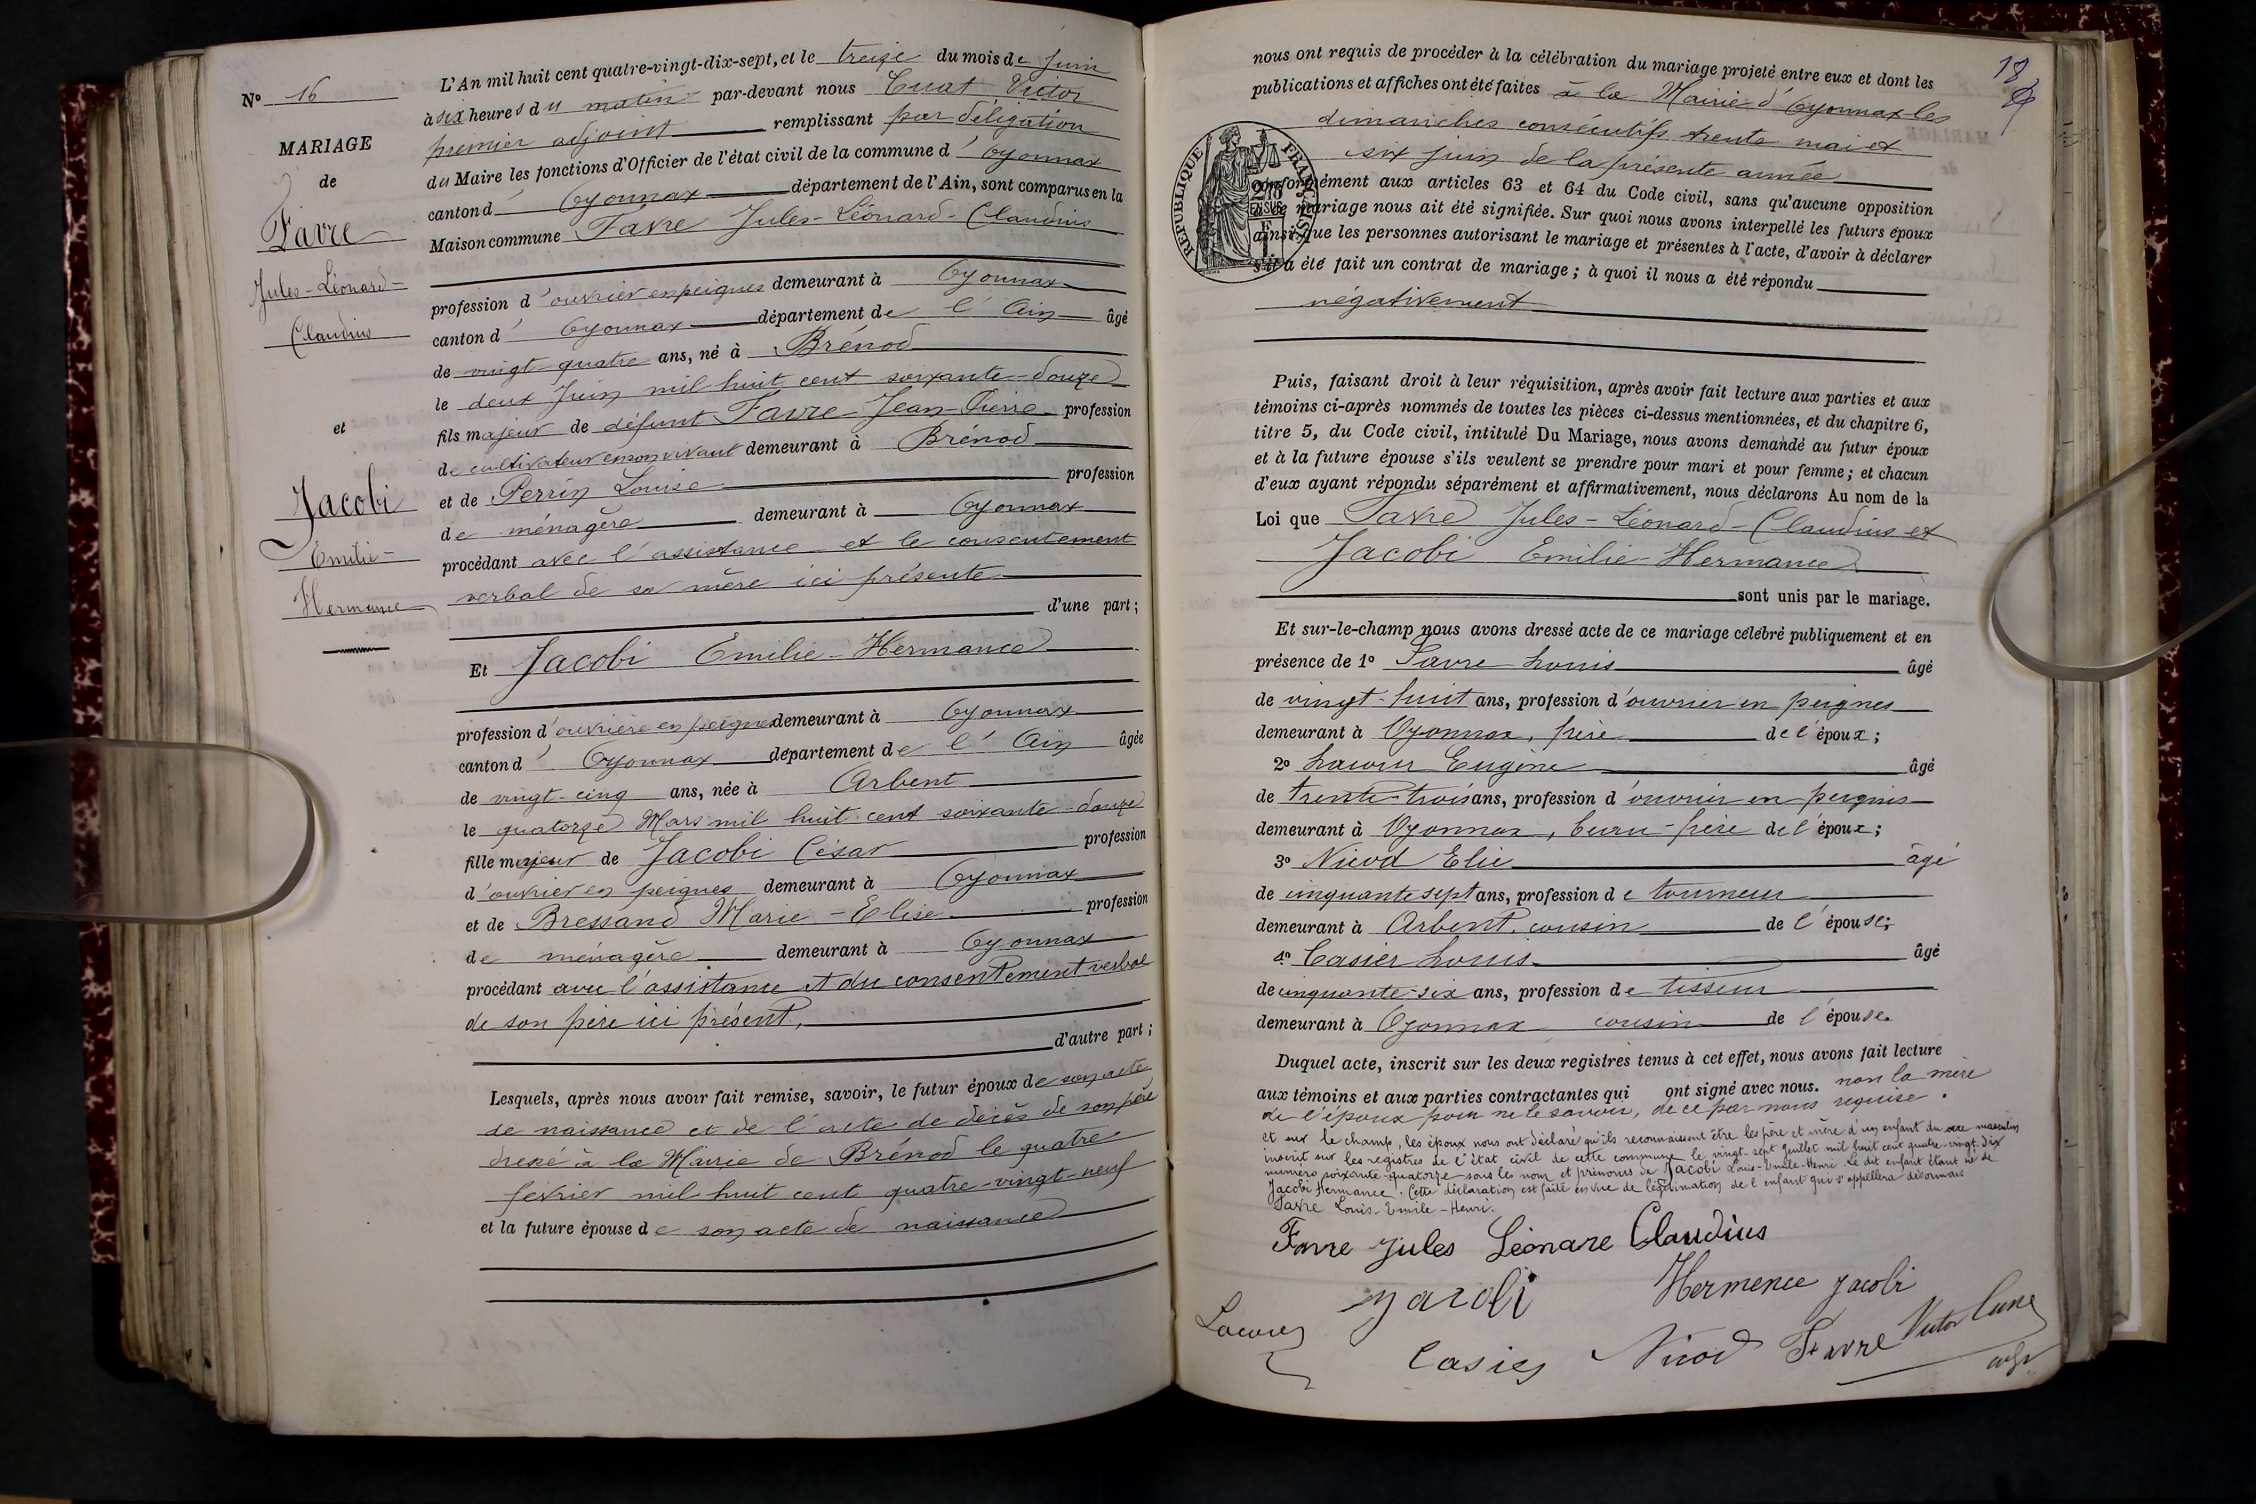 N° 16
MARIAGE
de
Favre
Jules-Léonard-
Claudius
et
Jacobi
Emilie-
Hermance
L'An mil huit cent quatre-vingt-dix-sept, et le treize du mois de juin
à six heures du matin par-devant nous Cuat Victor
premier adjoint remplissant par déligation
du Maire les fonctions d'Officier de l'état civil de la commune d'Oyonnax
canton d'Oyonnax département de l'Ain, sont comparus en la
Maison commune Favre Jules-Léonard-Claudius
profession d'ouvrier en peignes demeurant à Oyonnax
canton d'Oyonnax département de l'Ain âgé
de vingt-quatre ans, né à Brénod
le deux juin mil huit cent soixante-douze
fils majeur de défunt Favre Jean-Pierre profession
de cultivateur en son vivant demeurant à Brénod
et de Perrin Louise profession
de ménagère demeurant à Oyonnax
procédant avec l'assistance et le consentement
verbal de sa mère ici présente
d'une part;
Et Jacobi Emilie-Hermance
profession d'ouvrière en peignes demeurant à Oyonnax
canton d'Oyonnax département de l'Ain âgée
de vingt-cinq ans, née à Arbent
le quatorze Mars mil huit cent soixante-douze
fille majeur de Jacobi César profession
d'ouvrier en peignes demeurant à Oyonnax
et de Bressand Marie-Elise profession
de ménagère demeurant à Oyonnax
procédant avec l'assistance et du consentement verbal
de son père ici présent,
d'autre part;
Lesquels, après nous avoir fait remise, savoir, le futur époux de son acte
de naissance et de l'acte de décès de son père
dressé à la Mairie de Brénod le quatre
février mil huit cent quatre-vingt-neuf
et la future épouse de son acte de naissance
18
nous ont requis de procéder à la célébration du mariage projeté entre eux et dont les
publications et affiches ont été faites à la Mairie d'Oyonnax les
dimanches consécutifs trente mai et
six juin de la présente année
REPUBLIQUE FRANÇAISE
conformément aux articles 63 et 64 du Code civil, sans qu'aucune opposition
à ce mariage nous ait été signifiée. Sur quoi nous avons interpellé les futurs époux
ainsi que les personnes autorisant le mariage et présentes à l'acte, d'avoir à déclarer
s'il a été fait un contrat de mariage; à quoi il nous a été répondu
négativement
Puis, faisant droit à leur réquisition, après avoir fait lecture aux parties et aux
témoins ci-après nommés de toutes les pièces ci-dessus mentionnées, et du chapitre 6,
titre 5, du Code civil, intitulé Du Mariage, nous avons demandé au futur époux
et à la future épouse s'ils veulent se prendre pour mari et pour femme; et chacun
d'eux ayant répondu séparément et affirmativement, nous déclarons Au nom de la
Loi que Favre Jules-Léonard-Claudius et
Jacobi Emilie-Hermance
sont unis par le mariage.
Et sur-le-champ nous avons dressé acte de ce mariage célébré publiquement et en
présence de 1° Favre Louis âgé
de vingt-huit ans, profession d'ouvrier en peignes
demeurant à Oyonnax, frère de l'époux;
2° Lacour Eugène âgé
de trente-trois ans, profession d'ouvrier en peignes
demeurant à Oyonnax, beau-frère de l'époux;
3° Nicod Elie âgé
de cinquante sept ans, profession de tourneur
demeurant à Arbent, cousin de l'épouse;
4° Casier Louis âgé
de cinquante-six ans, profession de tisseur
demeurant à Oyonnax cousin de l'épouse.
Duquel acte, inscrit sur les deux registres tenus à cet effet, nous avons fait lecture
aux témoins et aux parties contractantes qui ont signé avec nous. non la mère
de l'époux pour ne le savoir, de ce par nous requise.
et sur le champ, les époux nous ont déclaré qu'ils reconnaissent être les père et mère d'un enfant du sexe masculin
inscrit sur les registres de l'état civil de cette commune le vingt-sept juillet mil huit cent quatre-vingt-dix
numéro soixante-quatorze sous les nom et prénoms de Jacobi Louis-Emile-Henri. Le dit enfant étant né de
Jacobi Hermance. Cette déclaration est faite en vue de légitimation de l'enfant qui s'appellera désormais
Favre Louis-Emile-Henri.
Favre Jules Léonare Claudius
Jacobi Hermence Jacobi
Lacour Casier Nicod Favre Victor